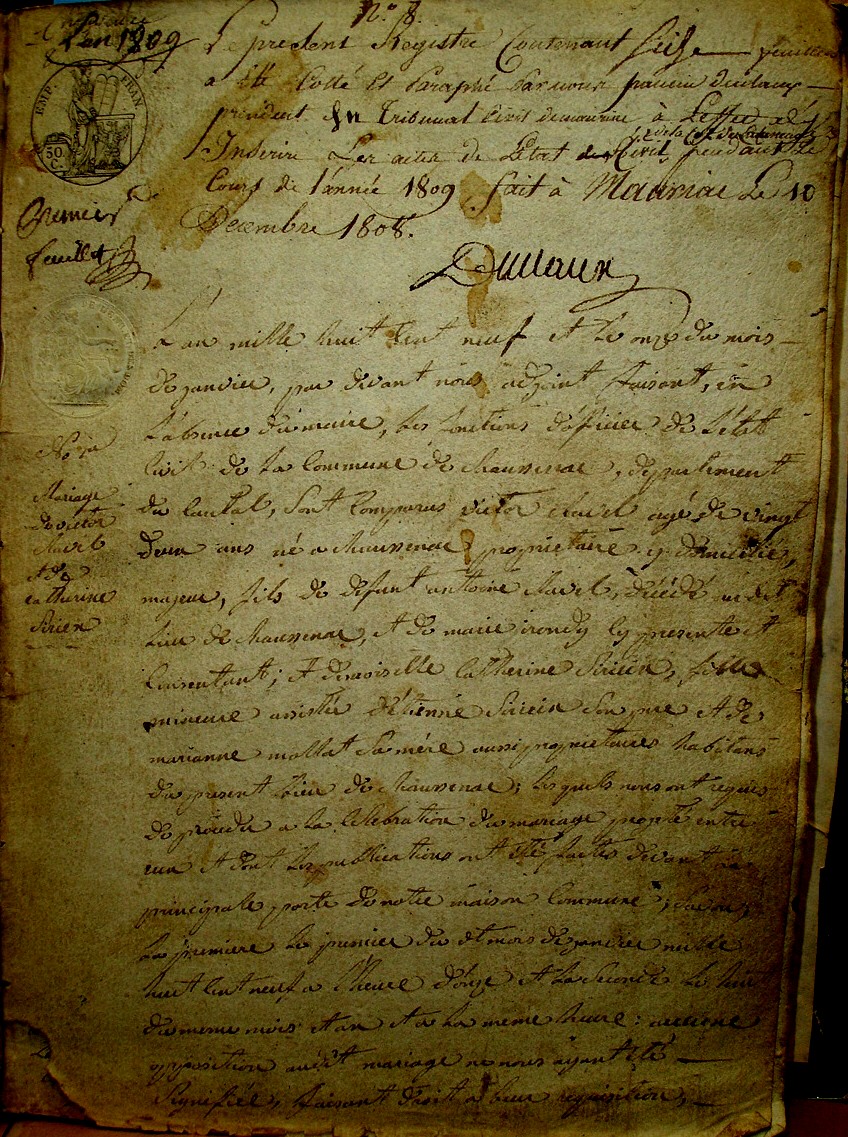 N.º 8.
L'an 1809
Le present Registre Contenant seise feuillets
a été Cotté Et Paraphé Par nous
president du Tribunal Civil de mauriac à L'effet d'y
de la Cne de Chaussenac
Inscrire Les actes de L'Etat Civil, pendant Le
Cours de l'année 1809 fait à Mauriac Le 10
Decembre 1808.
EMP. FRAN.
50 C.
Premier
feuillet
Duclaux
L'an mille huit Cent neuf et Le onze du mois
de janvier, par devant nous adjoint faisant, en
L'absence du maire, Les fonctions d'officier de L'état
Civil de La Commune de chaussenac, departement
du Cantal, sont Comparus victor Clavel agé de vingt
deux ans né a chaussenac, propriétaire y domicilié,
majeur, fils de défunt antoine Clavel, décédé au dit
Lieu de chaussenac, et de marie irondy Cy presente et
Consentant; et demoiselle Catherine Sirieix, fille
mineure assistée d'étienne Sirieix Son pere et de
marianne mollat Sa mére aussi propriétaires habitans
du present Lieu de chaussenac; Lesquels nous ont requis
de procéder a La Célébration du mariage projeté entre
eux et dont Les publications ont été faites devant La
principale porte de notre maison Commune; Savoir,
La premiere Le premier du dt mois de janvier mille
huit Cent neuf a L'heure d'onze et La Seconde Le huit
du meme mois et an et a La meme heure: aucune
opposition audit mariage ne nous ayant été
Signifiée, faisant droit a Leur requisition,
No 1er
Mariage
de victor
Clavel
et de
catherine
Sirieix